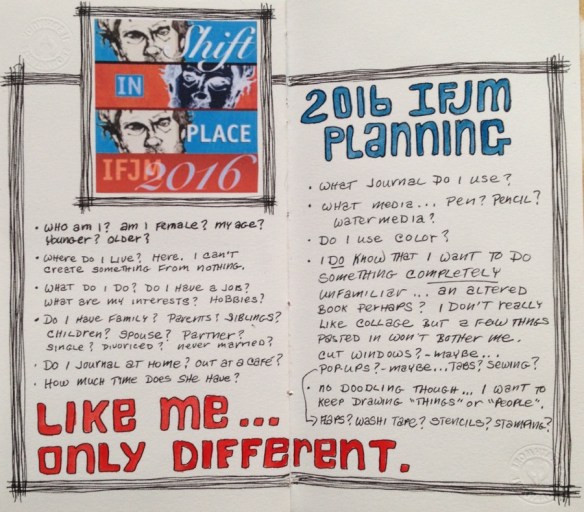 Shift
IN
PLACE
IFJM 2016
• WHO AM I? AM I FEMALE? MY AGE?
YOUNGER? OLDER?
• WHERE DO I LIVE? HERE. I CAN'T
CREATE SOMETHING FROM NOTHING.
• WHAT DO I DO? DO I HAVE A JOB?
WHAT ARE MY INTERESTS? HOBBIES?
• DO I HAVE FAMILY? PARENTS? SIBLINGS?
CHILDREN? SPOUSE? PARTNER?
SINGLE? DIVORCED? NEVER MARRIED?
• DO I JOURNAL AT HOME? OUT AT A CAFÉ?
• HOW MUCH TIME DOES SHE HAVE?
LIKE ME...
ONLY DIFFERENT.
2016 IFJM
PLANNING
• WHAT JOURNAL DO I USE?
• WHAT MEDIA... PEN? PENCIL?
WATERMEDIA?
• DO I USE COLOR?
• I DO KNOW THAT I WANT TO DO
SOMETHING COMPLETELY
UNFAMILIAR... AN ALTERED
BOOK PERHAPS? I DON'T REALLY
LIKE COLLAGE BUT A FEW THINGS
PASTED IN WON'T BOTHER ME.
CUT WINDOWS?-MAYBE...
POPUPS?-MAYBE...TABS? SEWING?
• NO DOODLING THOUGH... I WANT TO
KEEP DRAWING "THINGS" OR "PEOPLE".
FLAPS? WASHI TAPE? STENCILS? STAMPING?